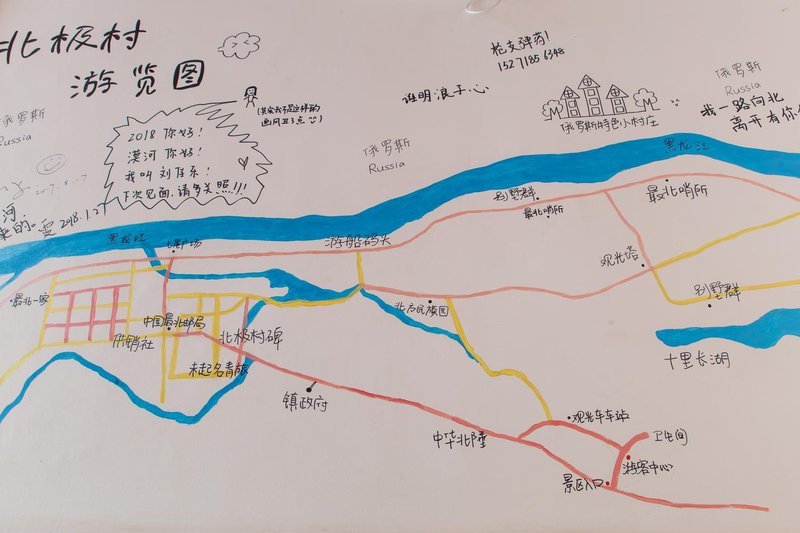 北极村
游览图
俄罗斯
Russia
2017.8.17
2018.1.27
2018 你好！
漠河 你好！
我叫 刘佳东！
下次见面.请多关照!!!
俄罗斯
Russia
谁明浪子心
枪支弹药!
152 7185 6348
俄罗斯特色小村庄
俄罗斯
Russia
我一路向北
离开有你
黑龙江
黑龙江
七星广场
游船码头
别墅群
最北哨所
最北哨所
观光塔
别墅群
最北一家
中国最北邮局
供销社
北极村碑
未起名青旅
北方民族园
十里长湖
镇政府
中华北陲
观光车车站
卫生间
游客中心
景区入口